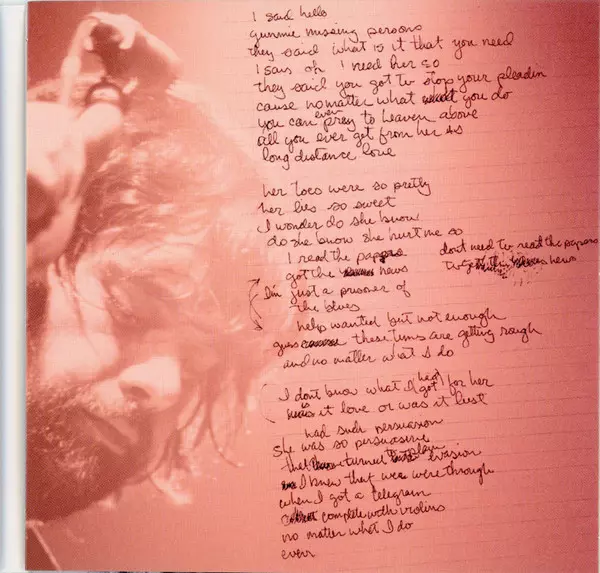 I said hello
gimmie missing persons
they said what is it that you need
I says oh I need her so
they said you got to stop your pleadin
cause no matter what you do
you can even pray to heaven above
all you ever get from her is
long distance love
her toes were so pretty
her lies so sweet
I wonder do she know
do she know she hurt me so
I read the papers
got the news
dont need to read the papers
to get the news
I'm just a prisoner of
the blues
help wanted but not enough
guess these times are getting rough
and no matter what I do
I dont know what I had got for her
was it love or was it lust
had such persuasion
She was so persuasive
that turned to plain evasion
I knew that we were through
when I got a telegram
complete with violins
no matter what I do
ever